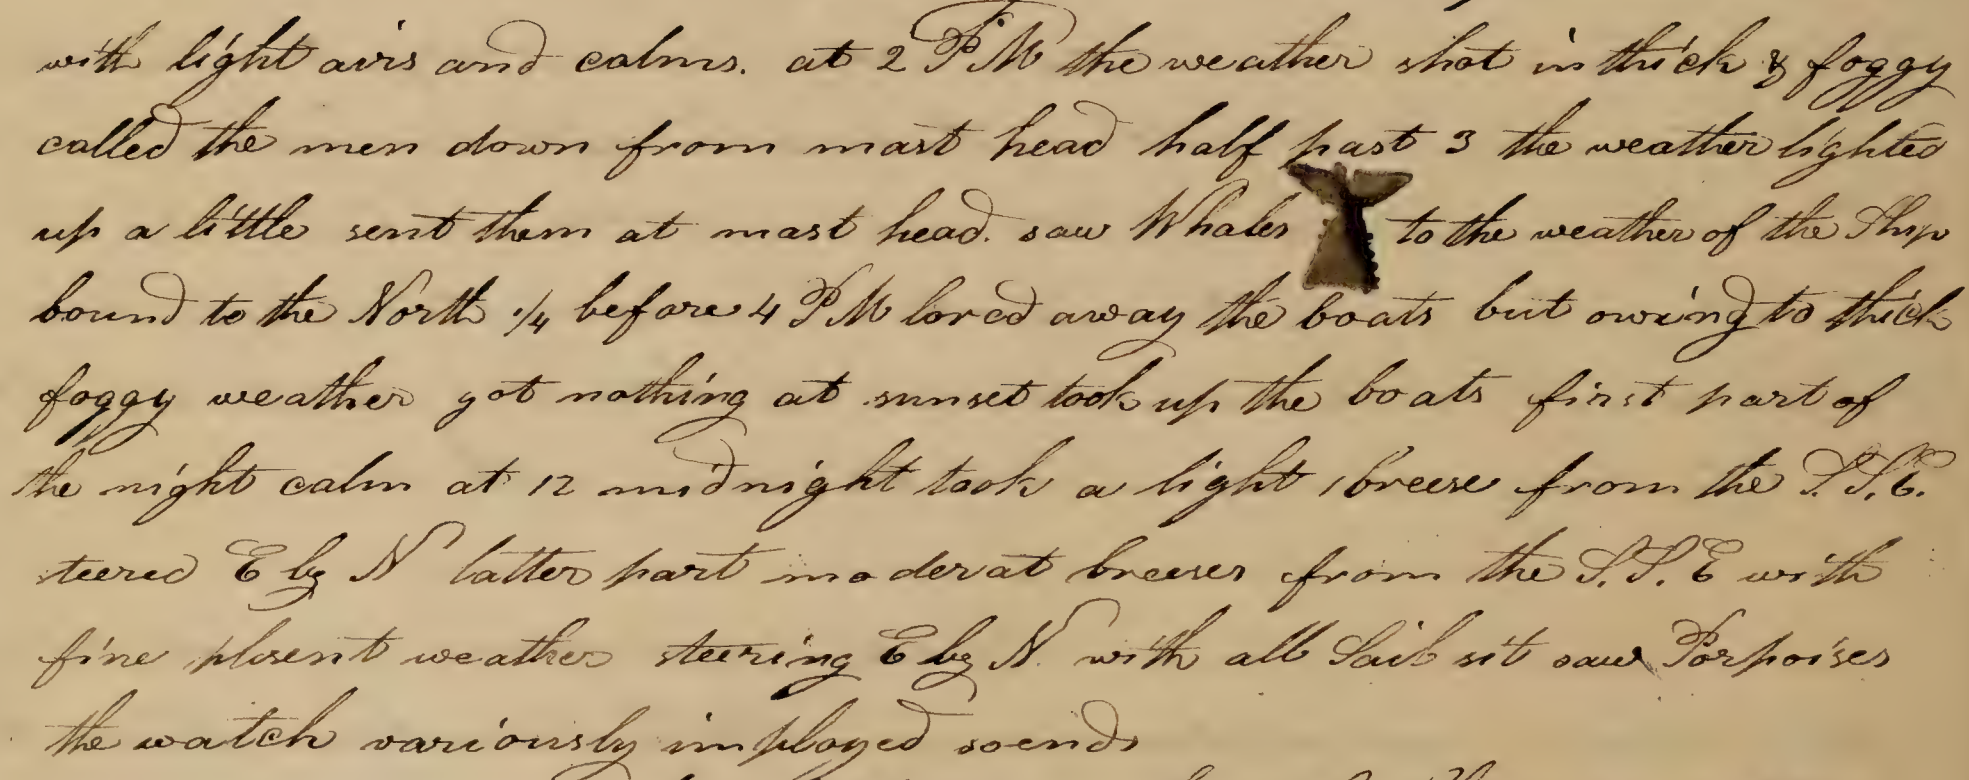 with light airs and calms. at 2 PM the weather shot in thick & foggy
called the men down from mast head half past 3 the weather lighted
up a little sent them at mast head. saw Whales to the weather of the Ship
bound to the North 1/4 before 4 PM lored away the boats but owing to thick
foggy weather got nothing at sunset took up the boats first part of
the night calm at 12 midnight took a light breese from the S.S.E.
steered E by N latter part moderat breeses from the S.S.E with
fine plesent weather steering E by N. with all Sail sit saw Porpoises
the watch variously imployed soends